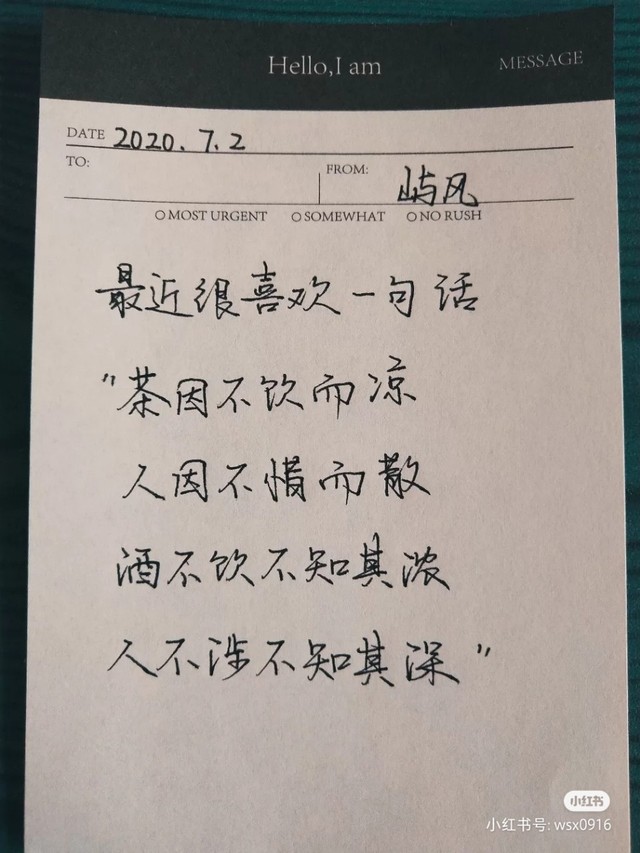 Hello,I am
MESSAGE
DATE 2020.7.2
TO:
FROM: 屿风
MOST URGENT SOMEWHAT NO RUSH
最近很喜欢一句话
"茶因不饮而凉
人因不惜而散
酒不饮不知其浓
人不涉不知其深"
小红书
小红书号: wsx0916